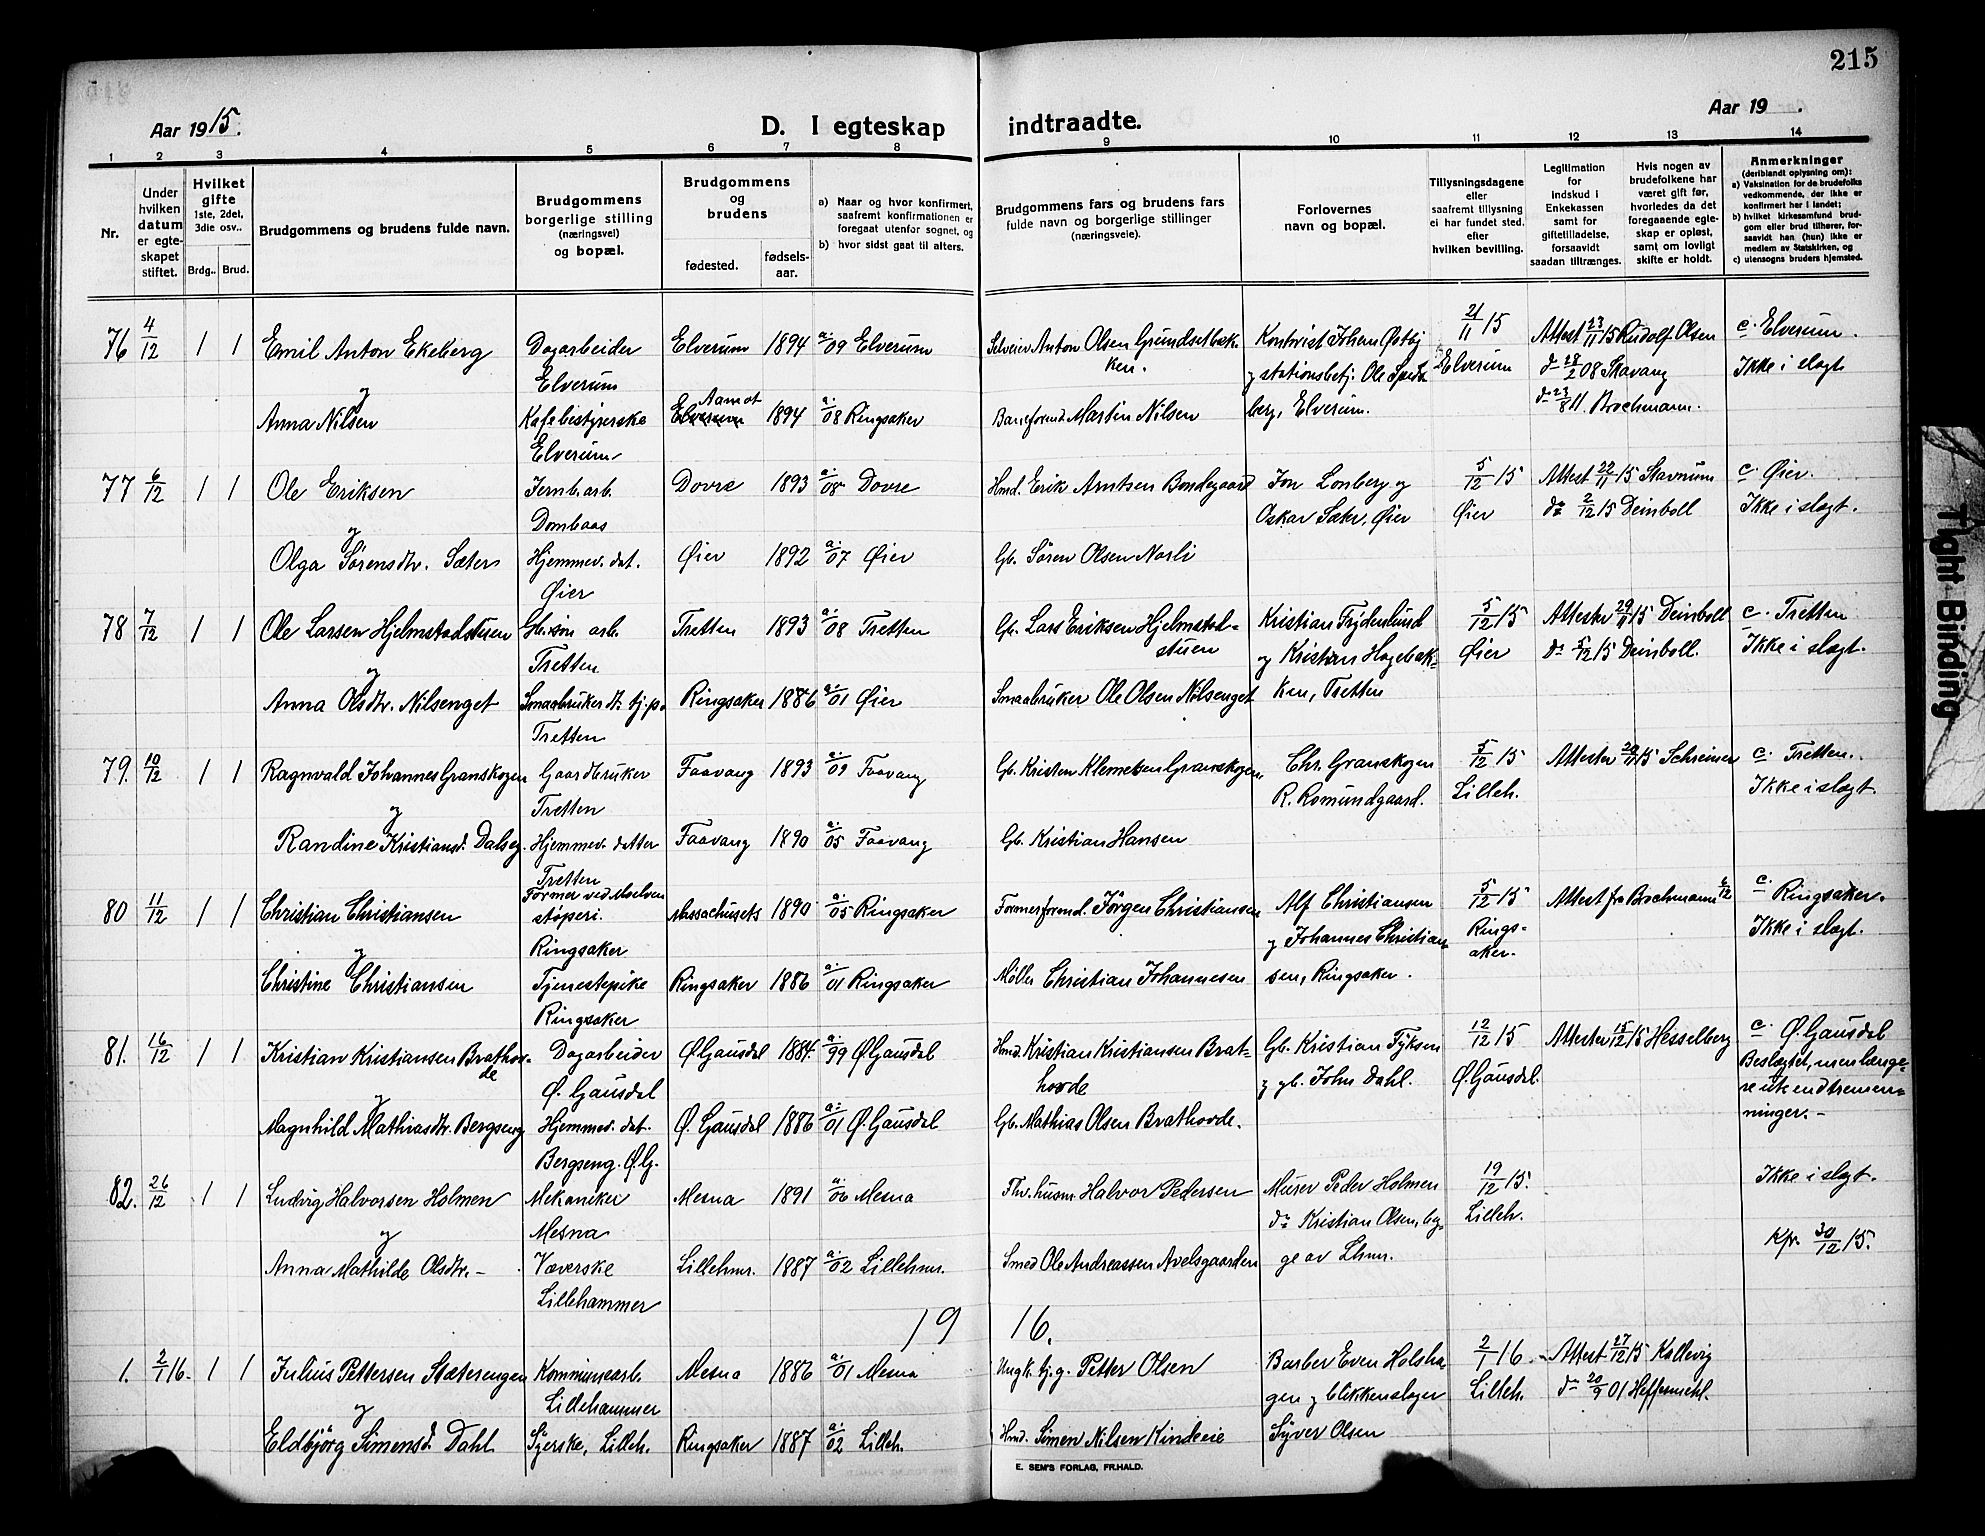 215
Aar 1915.
D. I egteskap indtraadte.
Aar 19 .
1 2 3 4 5 6 7 8 9 10 11 12 13 14
Nr.
Under hvilken datum er egteskapet stiftet.
Hvilket gifte
1ste, 2det, 3die osv..
Brdg.. Brud.
Brudgommens og brudens fulde navn.
Brudgommens borgerlige stilling (næringsvei) og bopæl.
Brudgommens og brudens
fødested. fødselsaar.
a) Naar og hvor konfirmert, saafremt konfirmationen er foregaat utenfor sognet, og
b) hvor sidst gaat til alters.
Brudgommens fars og brudens fars fulde navn og borgerlige stillinger (næringsveie).
Forlovernes navn og bopæl.
Tillysningsdagene eller saafremt tillysning ei har fundet sted. efter hvilken bevilling.
Legitimation for indskud i Enkekassen samt for giftetilladelse, forsaavidt saadan tiltrænges.
Hvis nogen av brudefolkene har været gift før, hvorledes da det foregaaende egteskap er opløst, samt om lovligt skifte er holdt.
Anmerkninger
(deriblandt oplysning om):
a) Vaksination for de brudefolks vedkommende, der ikke er konfirmert her i landet;
b) hvilket kirkesamfund brudgom eller brud tilhører, forsaavidt han (hun) ikke er medlem av Statskirken, og
c) utensogns bruders hjemsted.
76 4/12 1 1 Emil Anton Ekeberg Dagarbeider Elverum 1894 a: 09 Elverum Selveier Anton Olsen Grundsetbækken. 21/11 15 Elverum Attest 23/11 15 Rudolf Olsen c. Elverum.
Elverum og stationsbetj. Ole d= 28/2 08 Skavang Ikke i slegt
og
Anna Nilsen Kafebestyrerske Elverum Aamot 1894 a: 08 Ringsaker Baneformd. Martin Nilsen berg, Elverum. d= 23/8 11. Brochmann.
Elverum
77 6/12 1 1 Ole Eriksen Jernb.arb. Dovre 1893 a: 08 Dovre Hmd. Erik Arntsen Bondegaard Jon Lonberg og 5/12 15 Attest 22/11 15 Stavnum c. Øier.
Dombaas Oskar Sæter, Øier Øier d= 2/12 15 Deinboll Ikke i slegt.
og
Olga Sørensdtr. Sæter Hjemmev. dat. Øier 1892 a: 07 Øier Gb. Søren Olsen Norli
Øier
78 7/12 1 1 Ole Larsen Hjelmstadstuen Gb. søn arb. Tretten 1893 a: 08 Tretten Gb. Lars Eriksen Hjelmstad- Kristian Frydenlund 5/12 15 Attester 29/11 15 Deinboll c. Tretten
Tretten stuen og Kristian Hagebak- Øier d= 5/12 15 Deinboll. Ikke i slegt.
og
Anna Olsdtr. Nilsenget Smaabruker dt. tj.p. Ringsaker 1886 a: 01 Øier Smaabruker Ole Olsen Nilsenget ken, Tretten
Tretten
79. 10/12 1 1 Ragnvald Johannes Granskogen Gaardbruker Faavang 1893 a: 09 Faavang Gb. Kristen Klemetsen Granskogen Chr. Granskogen 5/12 15 Attester 29/11 15 Schreiner c. Tretten.
Tretten R. Romundgaard. Lilleh. Ikke i slegt.
og
Randine Kristiansd. Dalseg Hjemmev. datter Faavang 1890 a: 05 Faavang Gb. Kristian Hansen
Tretten
80 11/12 1 1 Christian Christiansen Former ved Moelven støperi. Massachusets 1890 a: 05 Ringsaker Formerformd. Jørgen Christiansen Alf Christiansen 5/12 15 Attest fra Brochmann 6/12 c. Ringsaker.
Ringsaker og Johannes Christian- Rings-aker. Ikke i slegt.
og
Christine Christiansen Tjenestepike Ringsaker 1886 a: 01 Ringsaker Møller Christian Johannesen sen, Ringsaker.
Ringsaker
81. 16/12 1 1 Kristian Kristiansen Brathovde Dagarbeider Ø Gausdal 1884. a: 99 Ø Gausdal Hmd. Kristian Kristiansen Brat- Gb. Kristian Fyksen 12/12 15 Attester 15/12 15 Hesselberg c. Ø. Gausdal
Ø. Gausdal hovde og gb. John Dahl. Ø. Gausdal. Beslegtet, men længere ute end tremenninger.-
og
Magnhild Mathiasdtr. Bergseng Hjemmev. dat. Ø. Gausdal 1886 a: 01 Ø. Gausdal Gb. Mathias Olsen Brathovde.
Bergseng. Ø.G.
82. 26/12 1 1 Ludvig Halvorsen Holmen Mekaniker Mesna 1891 a: 06 Mesna Fhv. husm. Halvor Pedersen Murer Peder Holmen 19/12 15. Ikke i slegt.
Mesna d= Kristian Olsen, beg- Lilleh.
og Kfr. 30/12 15.
Anna Mathilde Olsdtr.- Væverske Lillehmr. 1887 a: 02 Lillehmr. Smed Ole Andreassen Avelsgaarden ge av Lhmr.
Lillehammer
1916.
1. 2/1 16. 1 1 Julius Pettersen Stæterengen Kommunearb. Mesna 1886 a: 01 Mesna Ungk. tj.g. Petter Olsen Barber Even Holsha- 2/1 16. Attest 27/12 15 Kallevig
Lillehammer gen og blikkenslager Lilleh. d= 20/9 01 Heffermehl.
og
Eldbjörg Simensd. Dahl. Syerske, Lilleh. Ringsaker 1887 a: 02 Lilleh. Hmd. Simen Nilsen Kindeeie Syver Olsen
E. SEM'S FORLAG, FR.HALD.
Tight Binding